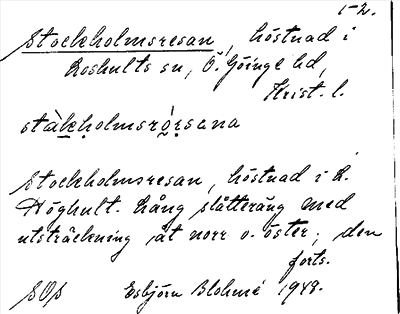 1-2.
Stockholmsresan, höstnad i
Loshults sn, Ö. Göinge hd,
Krist. l.
stàkholmsrésana
Stockholmsresan, höstnad i L.
Höghult. Lång slåtteräng med
utsträckning åt norr o. öster; den
forts.
SOS Esbjörn Blohmé 1948.